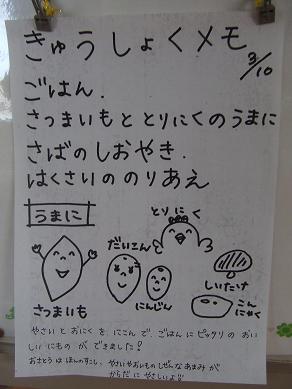 きゅうしょくメモ
3/10
ごはん.
さつまいもととりにくのうまに
さばのしおやき.
はくさいののりあえ
うまに
とりにく
だいこん
しいたけ
さつまいも
にんじん
こん
にゃく
やさいとおにくをにこんで、ごはんにピッタリのおい
しいにものができました!
おさとうはほんのすこし、やさいやおいものしぜんなあまみが
からだにやさしいよ!!